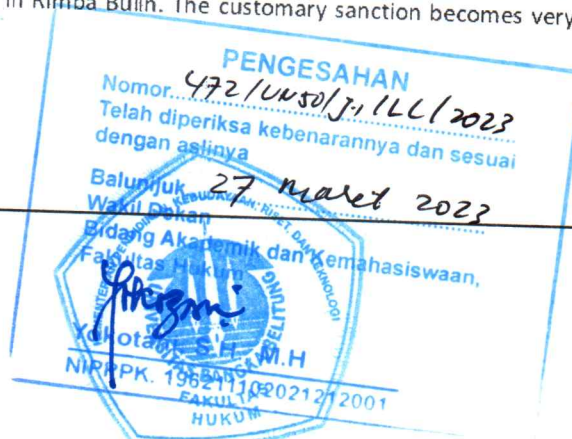 in Rimba Bulin. The customary sanction becomes very
PENGESAHAN
Nomor. 472/UN50/J.1/LL/2023
Telah diperiksa kebenarannya dan sesuai
dengan aslinya
Balunijuk, 27 maret 2023
Wakil Dekan
Bidang Akademik dan Kemahasiswaan,
Fakultas Hukum
KEBUDAYAAN, RISET, DAN TEKNOLOGI
BANGKA BELITUNG
FAKULTAS
HUKUM
Yokotani, S.H., M.H
NIPPPK. 196211102021212001